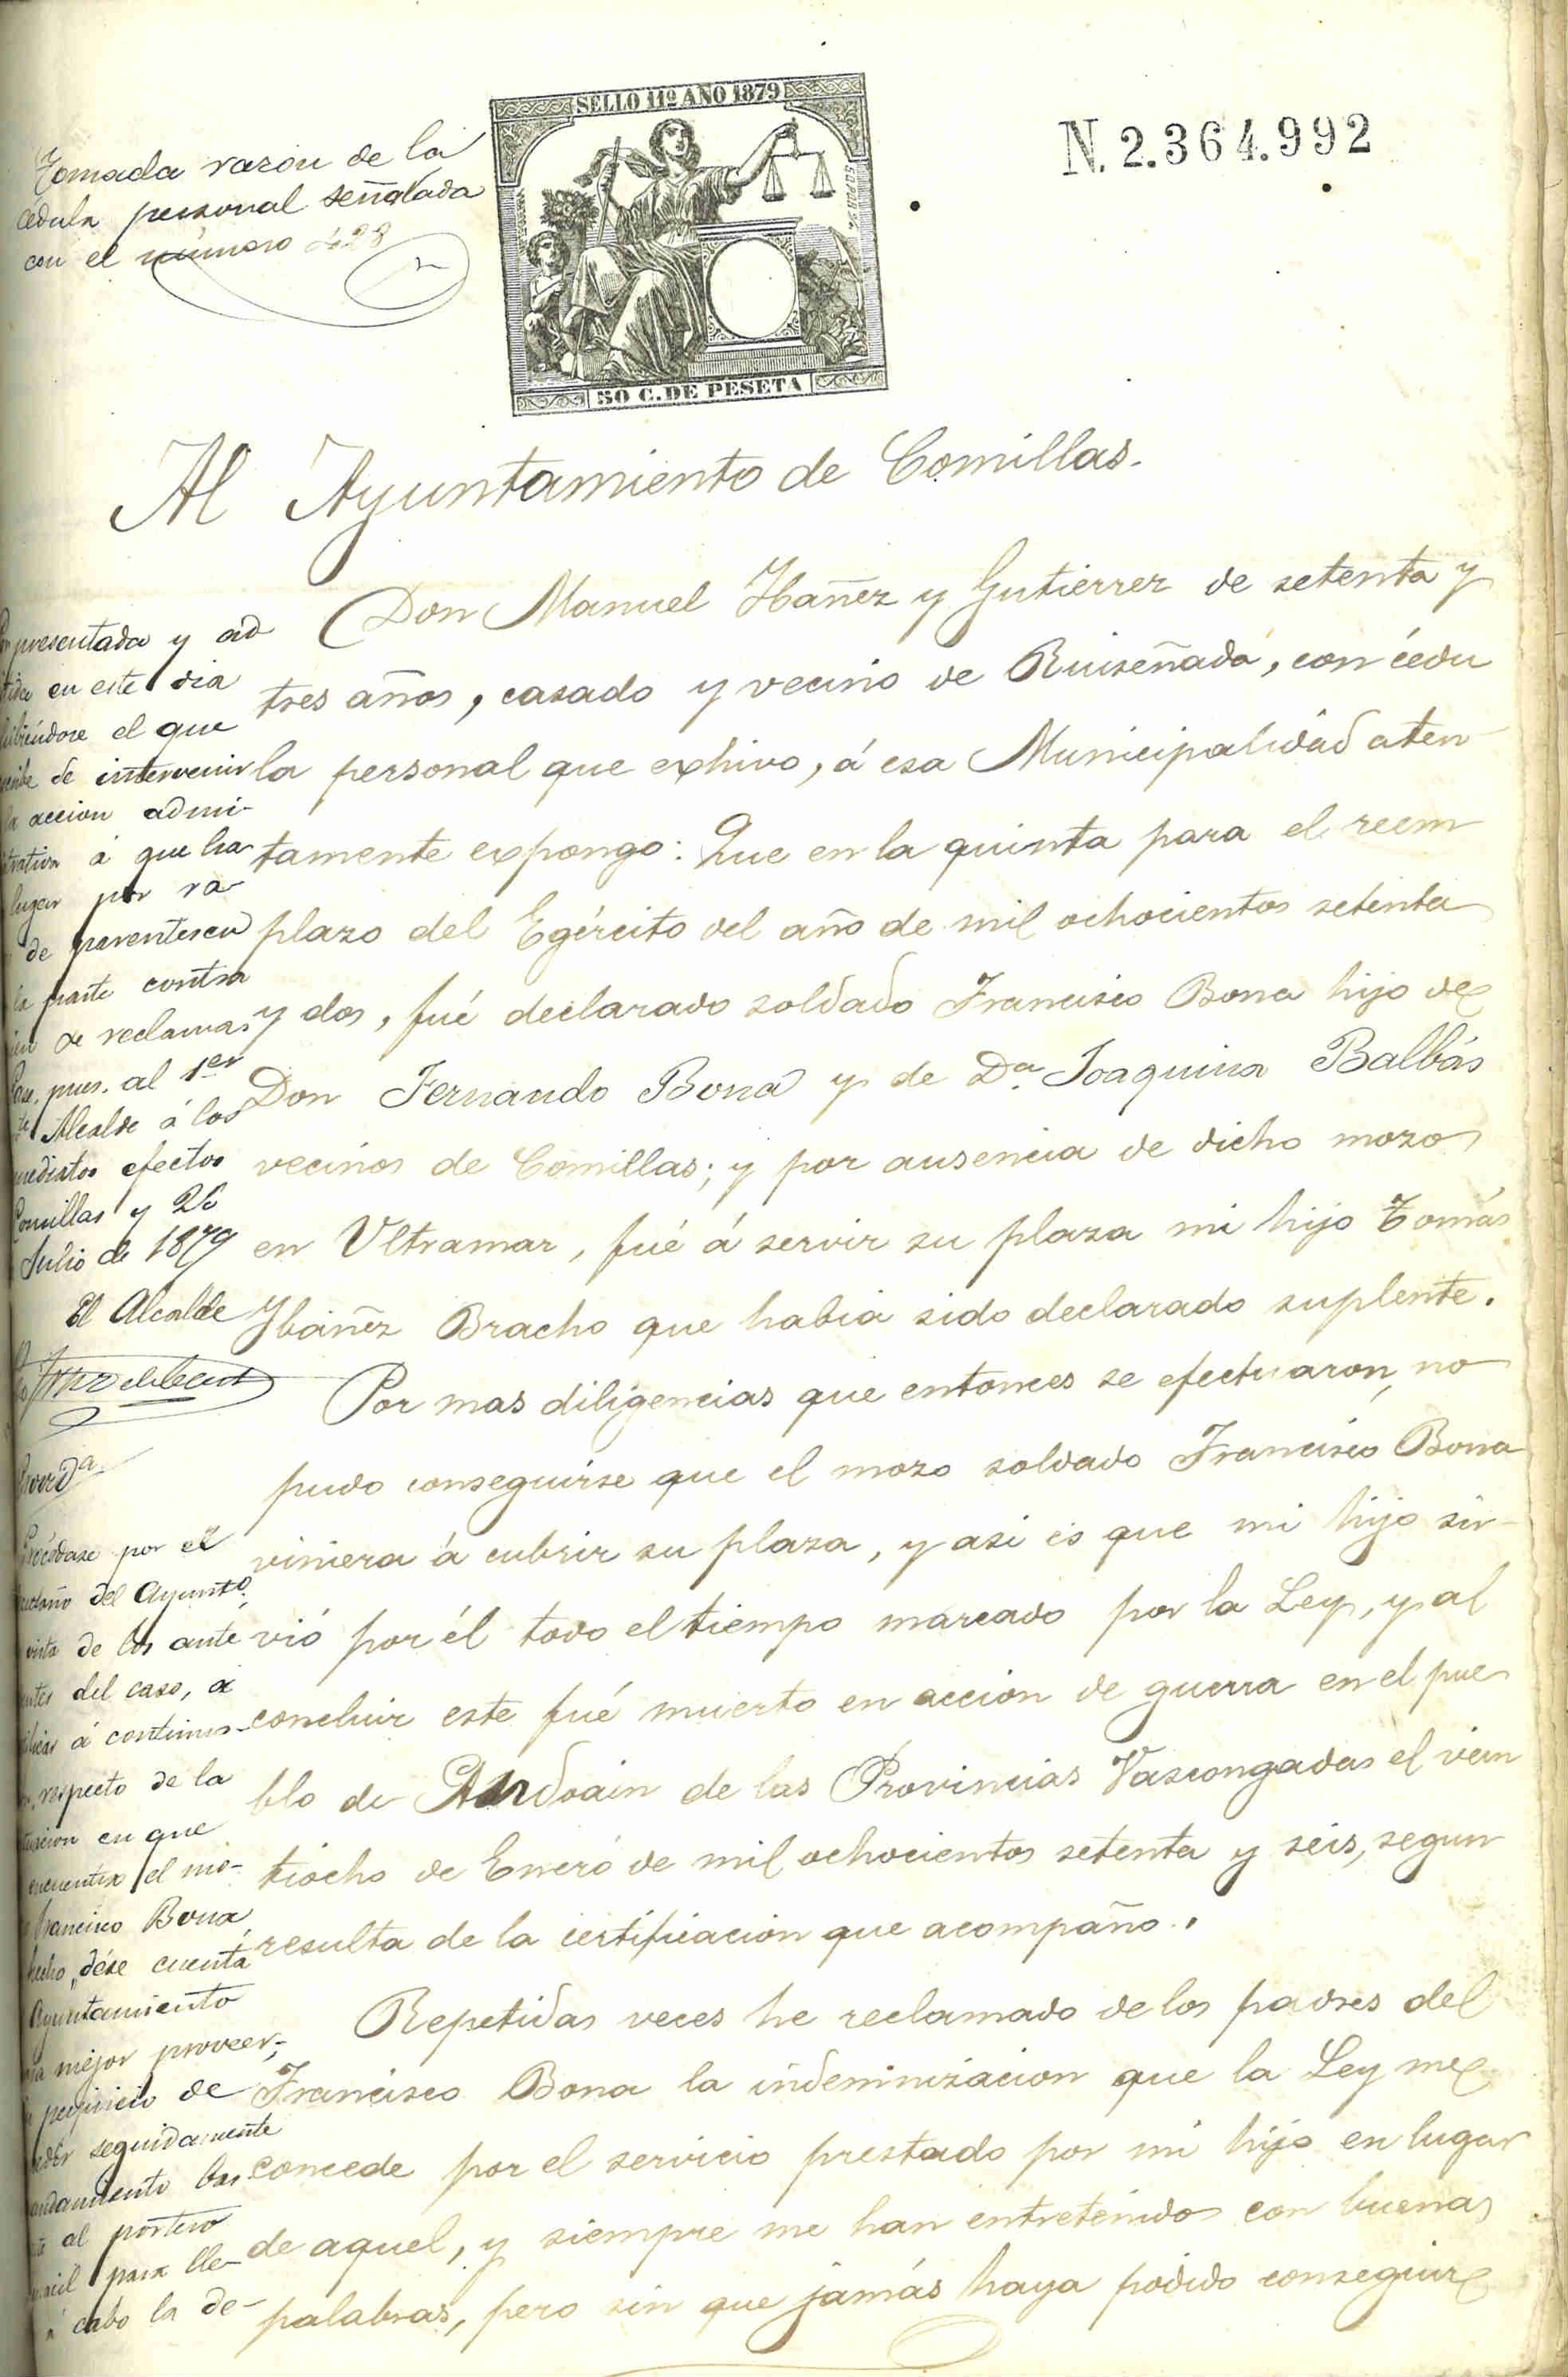 SELLO 11º AÑO 1879
50 C. DE PESETA
N. 2.364.992
Tomada razon de la
cédula personal señalada
con el número 428
Al Ayuntamiento de Comillas.
Don Manuel Ibañez y Gutierrez de setenta y
tres años, casado y vecino de Ruiseñada, con cédu
la personal que exhivo, á esa Municipalidad aten
tamente expongo: Que en la quinta para el reem
plazo del Egército del año de mil ochocientos setenta
y dos, fué declarado soldado Francisco Bona hijo de
Don Fernando Bona y de Dª Joaquina Balbás
vecinos de Comillas; y por ausencia de dicho mozo
en Ultramar, fué á servir su plaza mi hijo Tomás
Ybáñez Bracho que habia sido declarado suplente.
Por mas diligencias que entonces se efectuaron, no
pudo conseguirse que el mozo soldado Francisco Bona
viniera á cubrir su plaza, y asi es que mi hijo sir-
vió por él todo el tiempo marcado por la Ley, y al
concluir este fué muerto en accion de guerra en el pue
blo de Andoain de las Provincias Vascongadas el vein
tiocho de Enero de mil ochocientos setenta y seis, segun
resulta de la certificacion que acompaño.
Repetidas veces he reclamado de los padres del
Francisco Bona la indemnizacion que la Ley me
concede por el servicio prestado por mi hijo en lugar
de aquel, y siempre me han entretenido con buenas
palabras, pero sin que jamás haya podido conseguir
presentada y ad
en este dia
el que
de intervenir
la accion admi-
á que ha
lugar por ra-
de parentesco
la parte contra
de reclama
pues. al 1er
Alcalde á los
efectos
Comillas y 26
Julio de 1879
El Alcalde
Provdª
Procédase por el
del Ayuntº
vista de los ante
del caso, á
á continua-
respecto de la
en que
encuentra el mo-
Francisco Bona
hecho, dése cuenta
Ayuntamiento
mejor proveer;
perjuicio de
seguidamente
al portero
para lle-
á cabo la de-